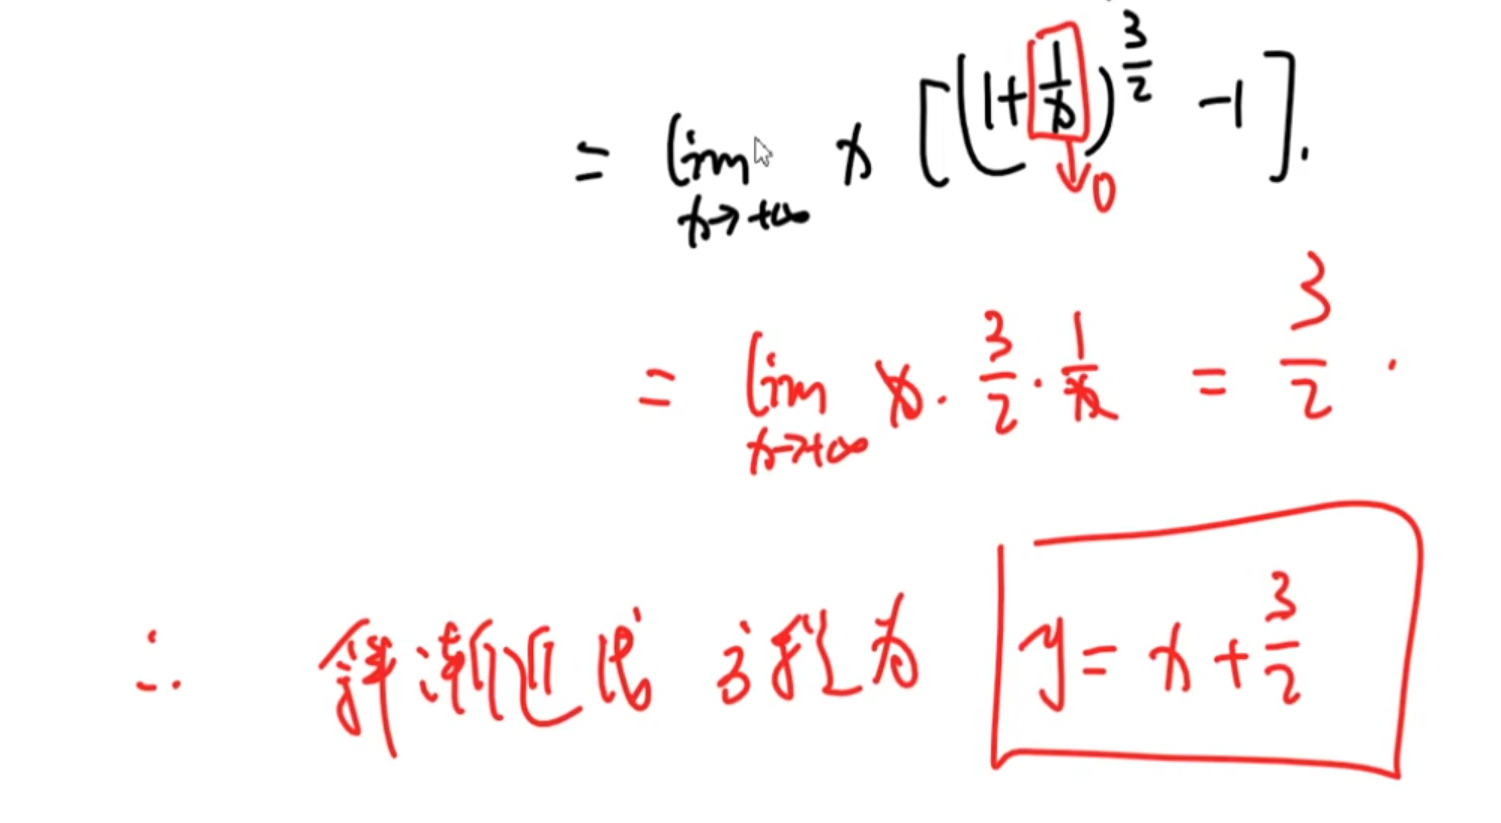 = lim x→+∞ x [(1+1/x)^(3/2) -1]. ↓0
= lim x→+∞ x · 3/2 · 1/x = 3/2 .
∴ 斜渐近线方程为 y = x + 3/2